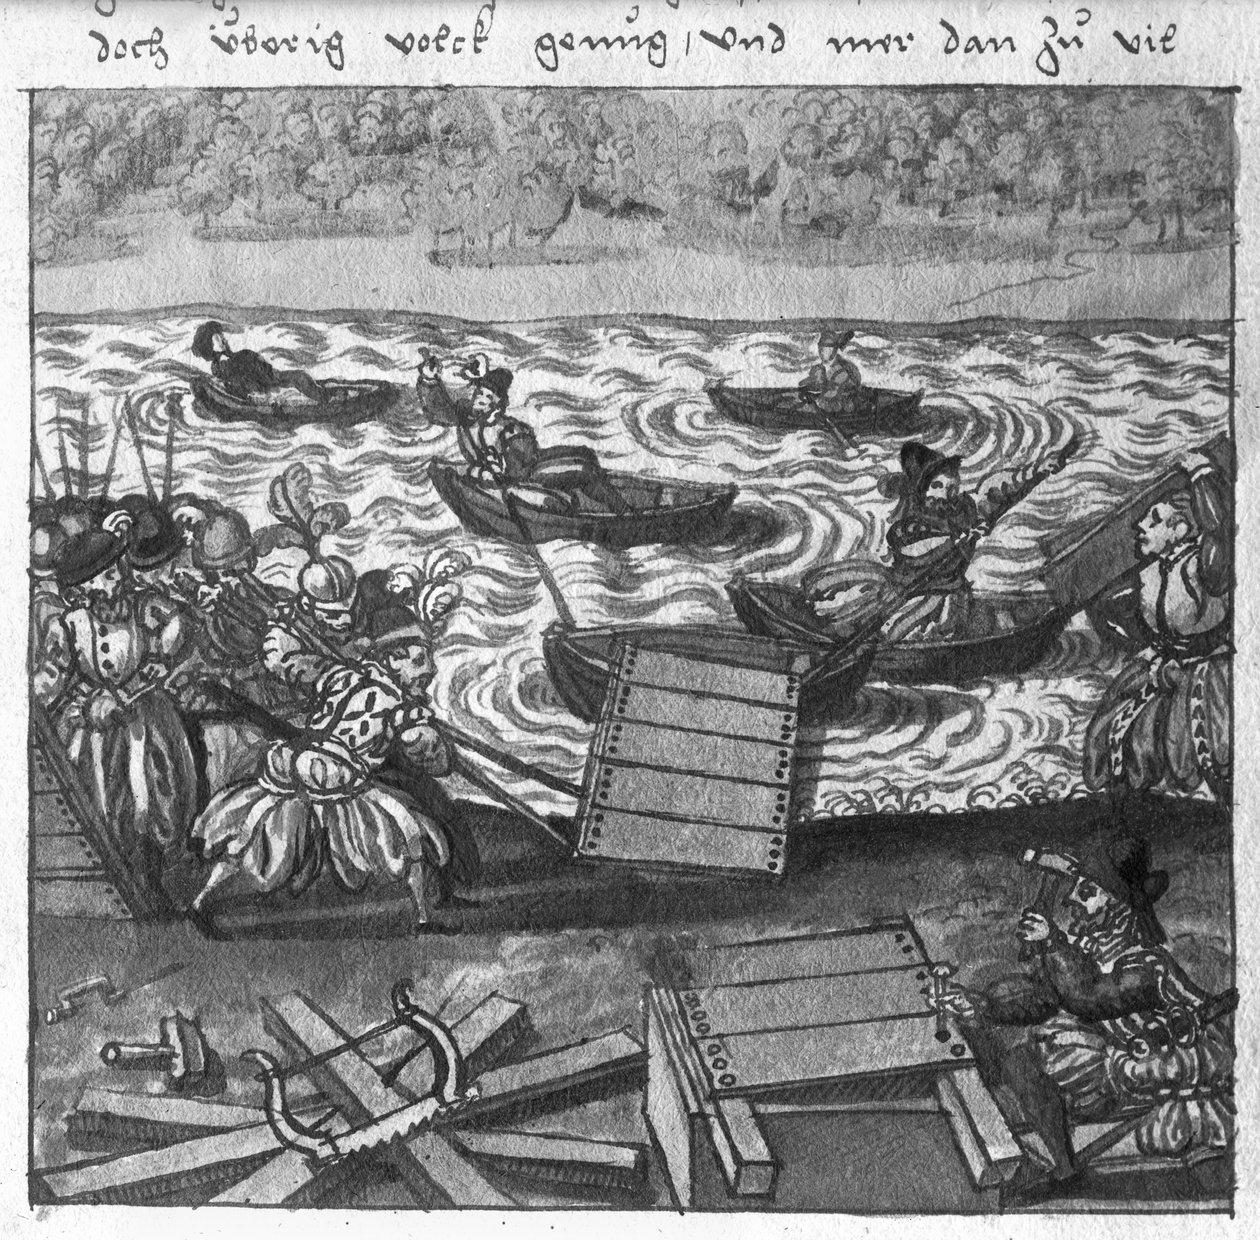 doch v̈berig volck genu̇g / vnd mer dan zu̇ vil